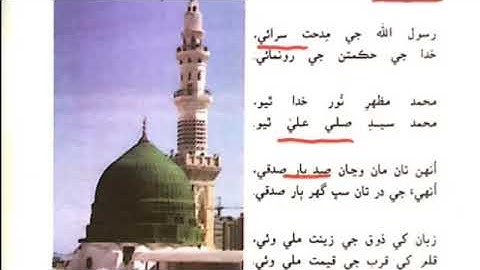 رسول الله جي مِدحت سرائي.
خدا جي حڪمتن جي رونمائي.
محمد مظهرِ نُور خدا ٿيو
محمد سيد صلي عليٰ ٿيو
اُنهن تان مان وڃان صد بار صدقي.
اُنهيءَ جي در تان سڀ گهر ٻار صدقي.
زبان کي ذوق جي زينت ملي وئي.
قلم کي قرب جي قيمت ملي وئي.